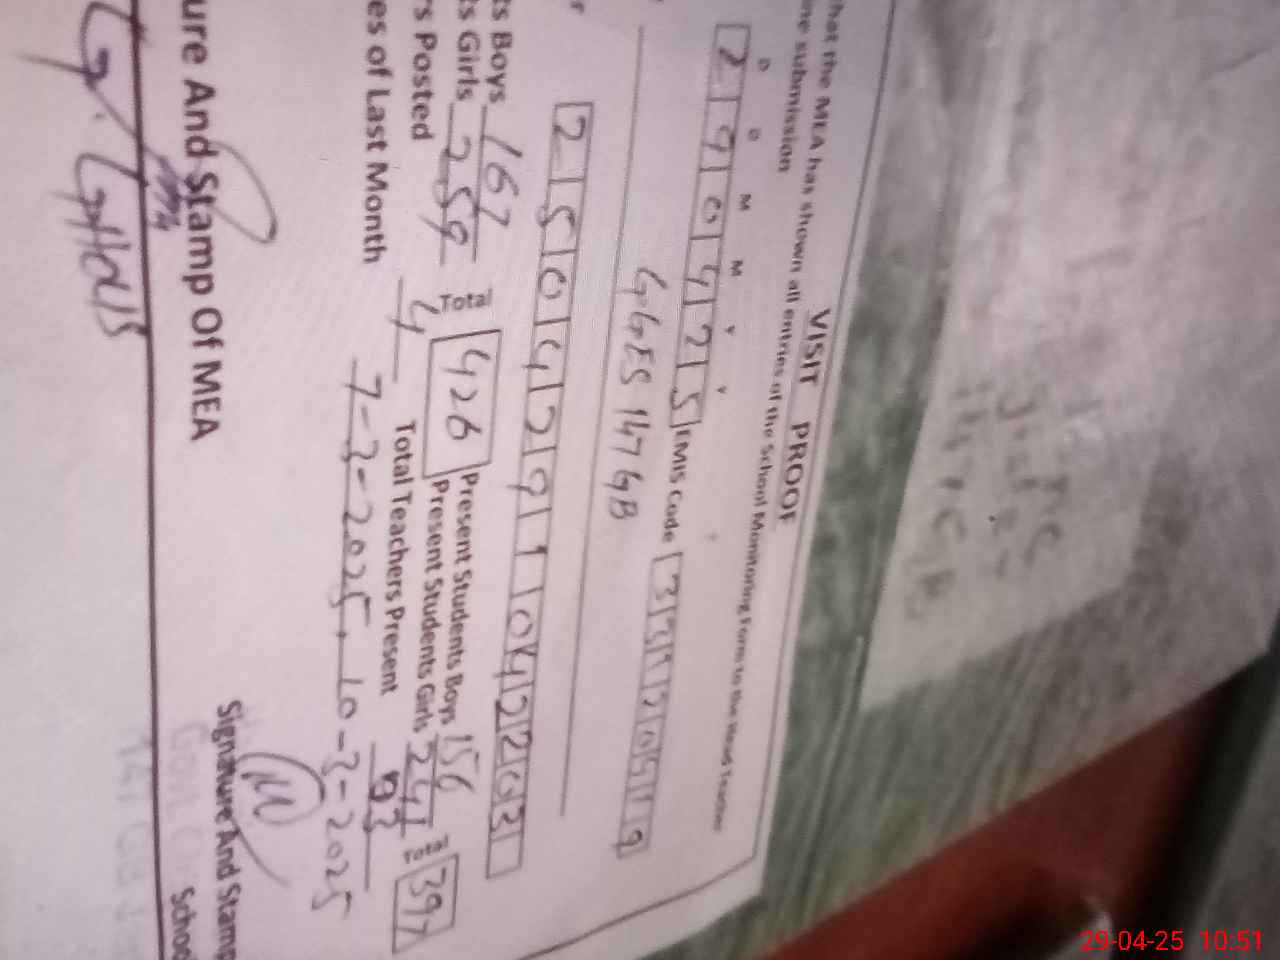 VISIT PROOF
hat the MEA has shown all entries of the School Monitoring Form to the Head Teacher
re submission
D D M M Y Y
290425 EMIS Code 33120519
GGES 147 GB
r
25042911042203
ts Boys 167
ts Girls 259 Total 426
Present Students Boys 156
Present Students Girls 241 Total 397
rs Posted 4 Total Teachers Present 03
es of Last Month 7-3-2025, 10-3-2025
ure And Stamp Of MEA
Signature And Stamp
Schoo
29-04-25 10:51